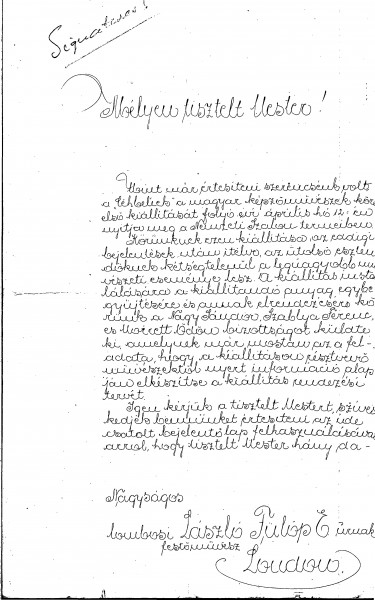 Signatures!
Mélyen tisztelt Mester!
Mint már értesiteni szerencsénk volt
a "Céhbeliek" a magyar képzőművészek köre
első kiállitását folyó évi április hó 12.-én
nyitja meg a Nemzeti Szalon termeiben.
Körünknek ezen kiállitása, az eddigi
bejelentések után itélve, az utolsó eszten
dőknek kétségtelenül a legnagyobb mű
vészeti eseménye lesz. A kiállitás
lálására a kiállitandó anyag egybe
gyüjtésére és annak elrendezésére kö
rünk a Nagy Sándor, Szablya Ferenc,
és Moirett Ödön bizottságot küldte
ki, amelynek már mostan az a fel-
adata, hogy a kiállitáson résztvevő
művészektől nyert információ alap
ján elkészitse a kiállitás rendezési
tervét.
Igen kérjük a tisztelt Mestert, szives
kedjék bennünket értesiteni az ide
csatolt bejelentőlap felhasználásával
arról, hogy tisztelt Mester hány da-
Nagyságos
lombosi László Fülöp E. úrnak
festőművész
London.